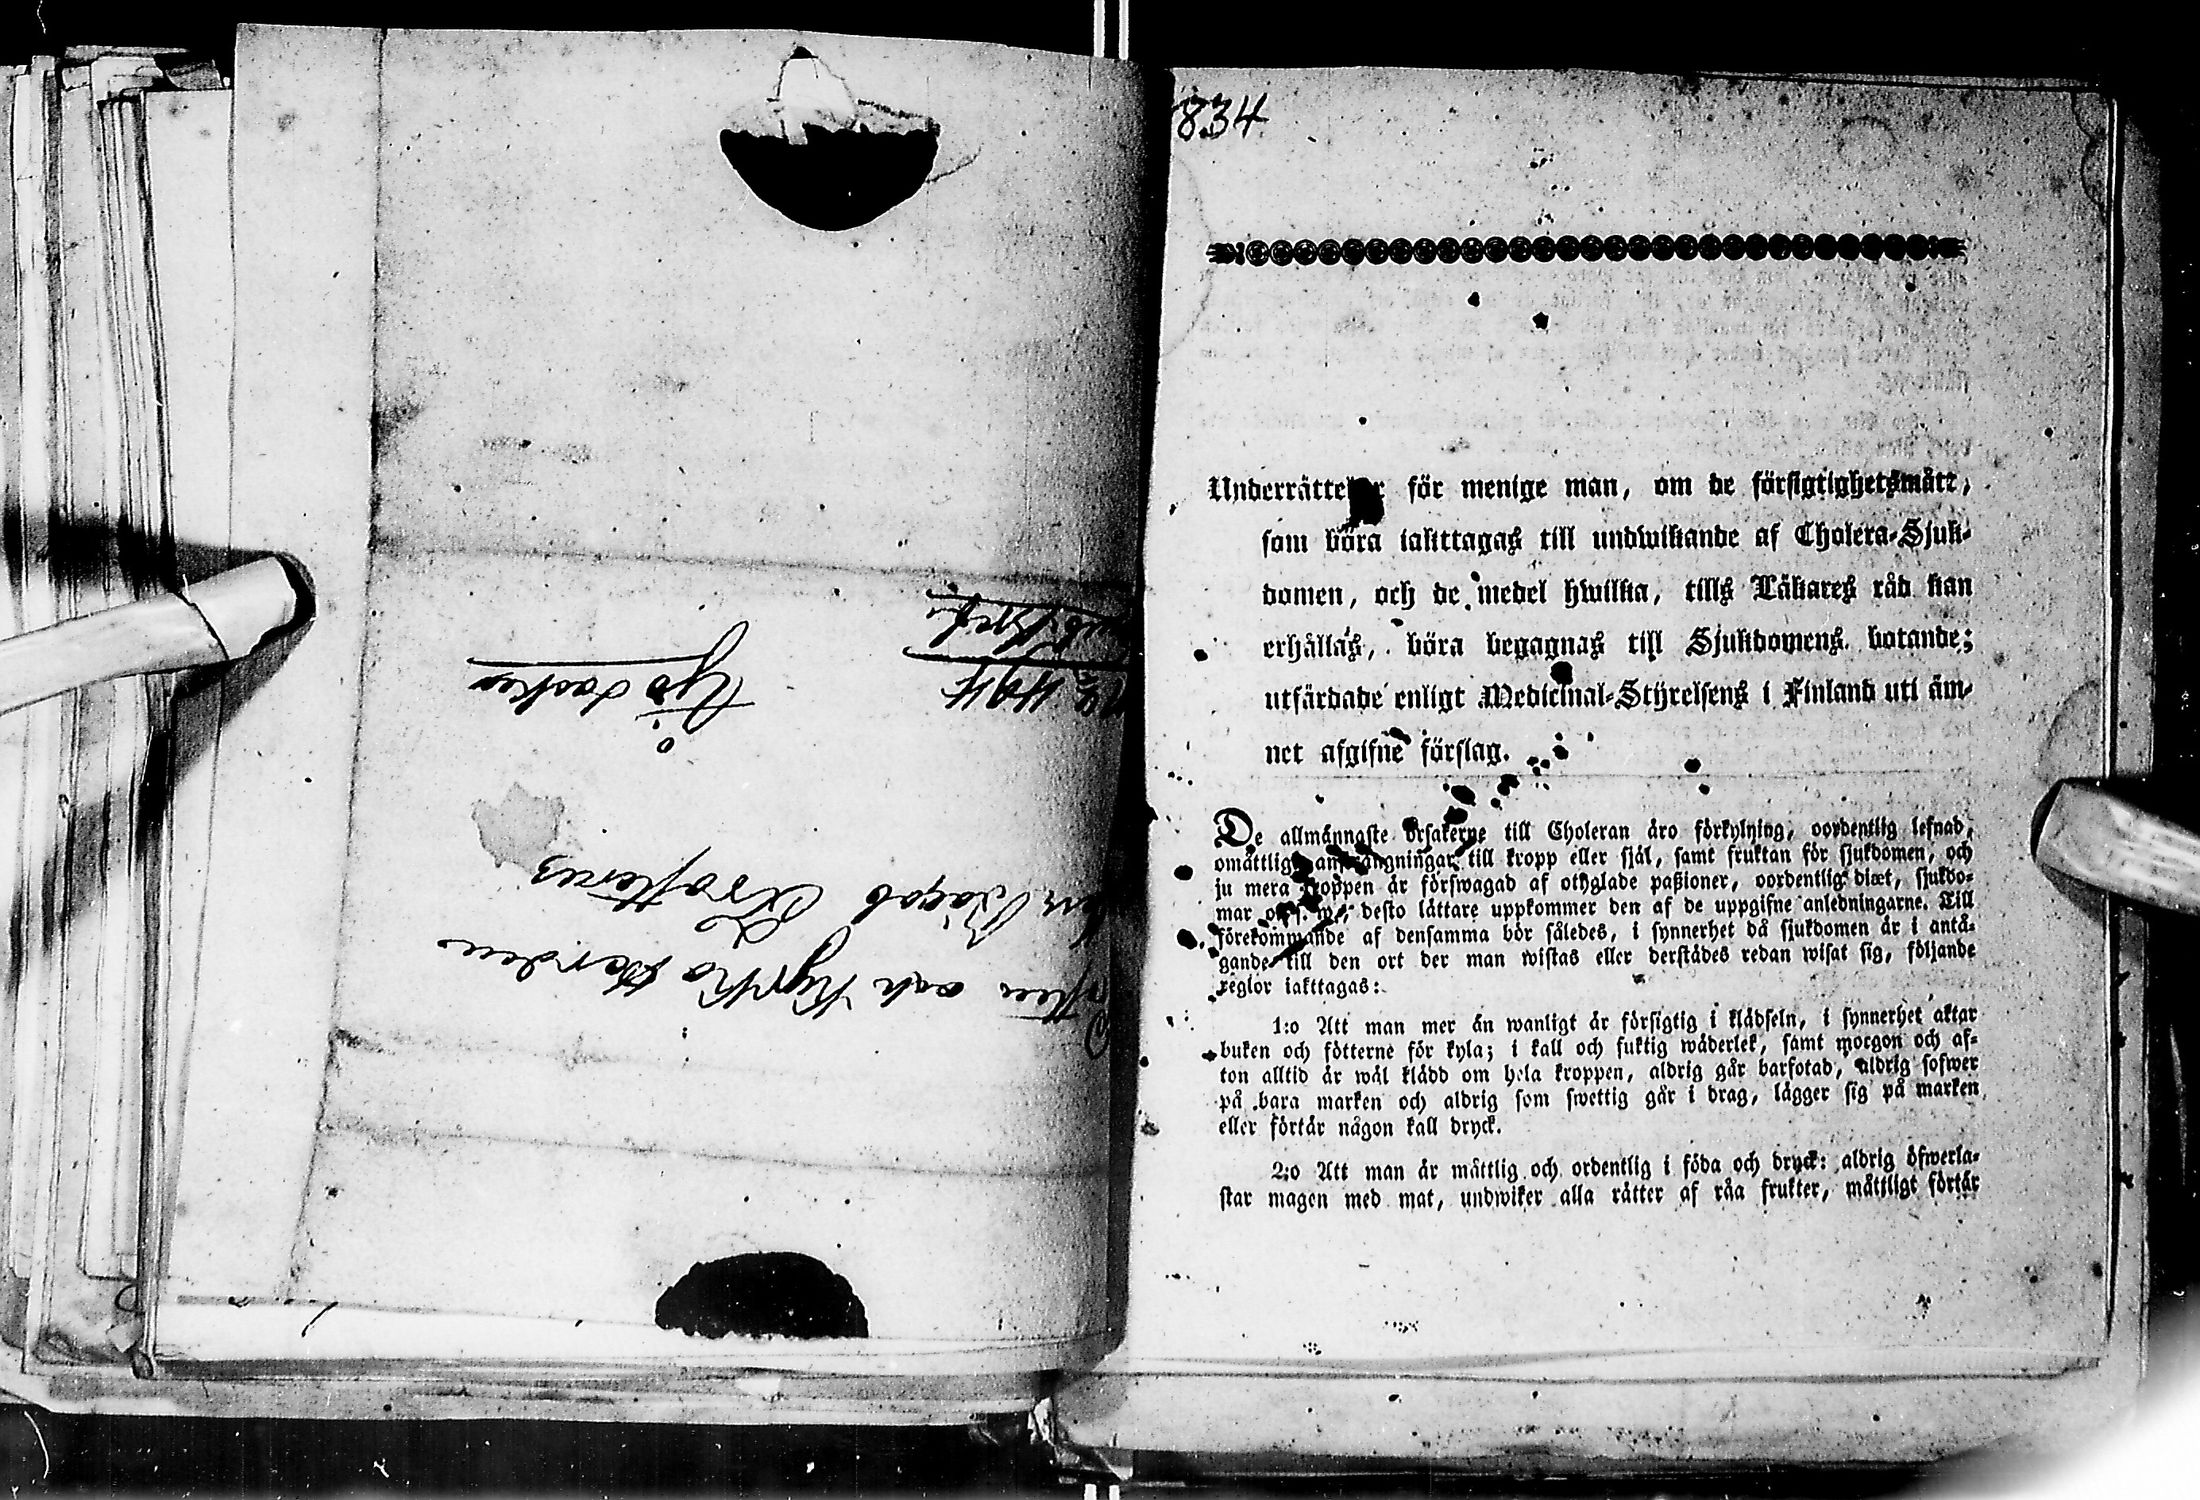 834
Underrättelser för menige man, om de försigtighetsmått,
som böra iakttagas till undwikande af Cholera-Sjuk-
domen, och de medel hwilka, tills Läkares råd kan
erhållas, böra begagnas till Sjukdomens botande;
utfärdade enligt Medicinal-Styrelsens i Finland uti äm-
net afgifne förslag.
De allmännaste orsakerne till Choleran äro förkylning, oordentlig lefnad,
omåttliga ansträngningar till kropp eller själ, samt fruktan för sjukdomen, och
ju mera kroppen är förswagad af otyglade paßioner, oordentlig diæt, sjukdo-
mar o. s. w., desto lättare uppkommer den af de uppgifne anledningarne. Till
förekommande af densamma bör således, i synnerhet då sjukdomen är i antå-
gande till den ort der man wistas eller derstädes redan wisat sig, följande
reglor iakttagas:
1:o Att man mer än wanligt är försigtig i klädseln, i synnerhet aktar
buken och fötterne för kyla; i kall och fuktig wäderlek, samt morgon och af-
ton alltid är wäl klädd om hela kroppen, aldrig går barfotad, aldrig sofwer
på bara marken och aldrig som swettig går i drag, lägger sig på marken
eller förtär någon kall dryck.
2:o Att man är måttlig och ordentlig i föda och dryck: aldrig öfwerla-
star magen med mat, undwiker alla rätter af råa frukter, måttligt förtär
och Kyrko Herden
Jacob